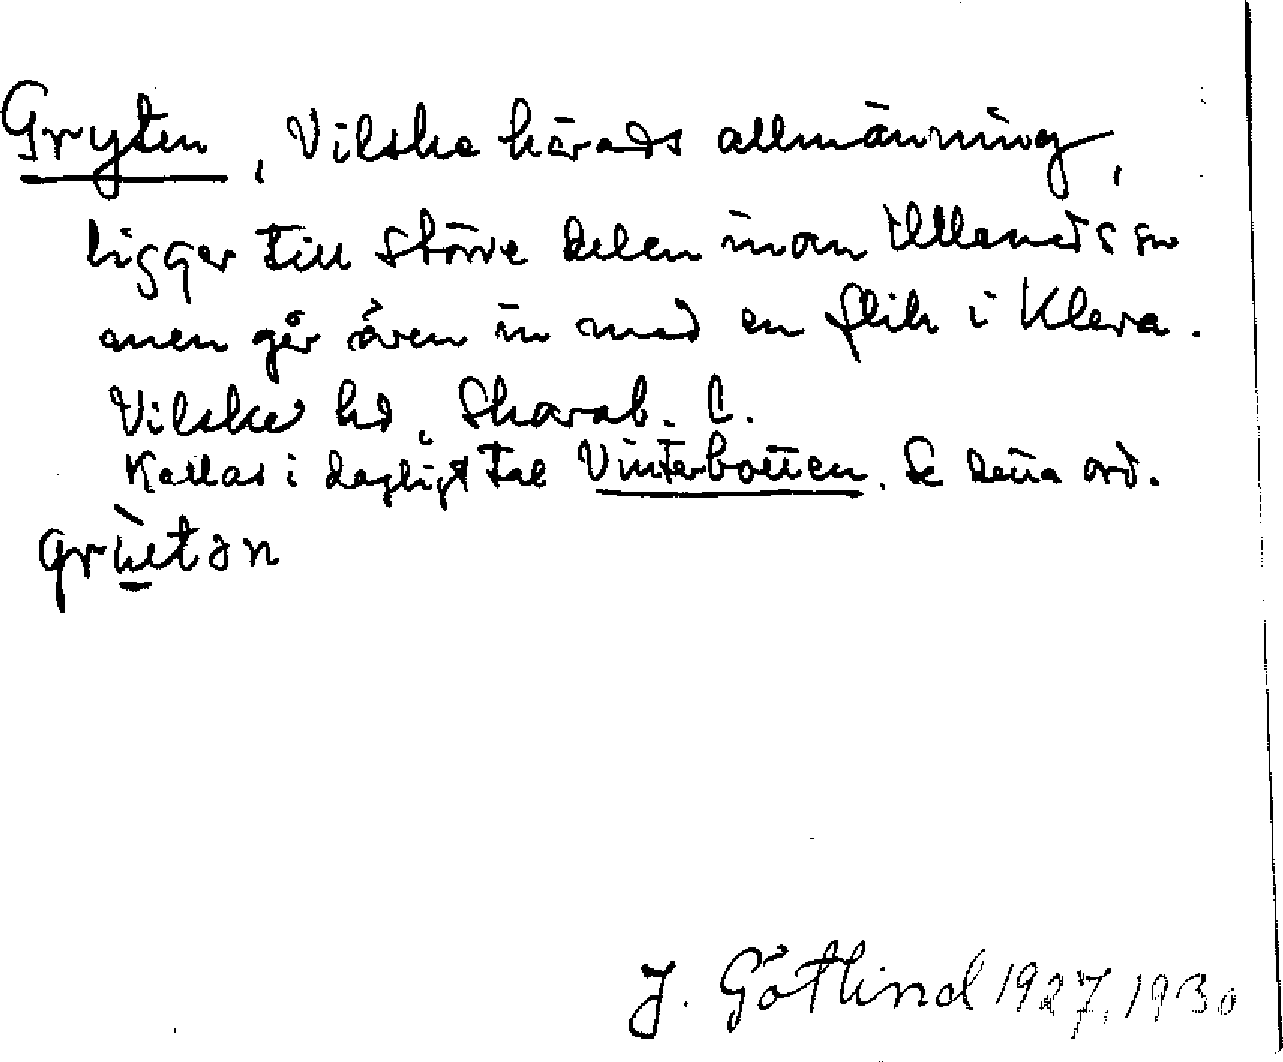 Gryten, Vilske härads allmänning,
ligger till större delen inom Ullened sn
men går även in med en flik i Kleva.
Vilske hd, Skarab. l.
Kallas i dagligt tal Vinterbotten. Se detta ord.
J. Götlind 1927, 1930